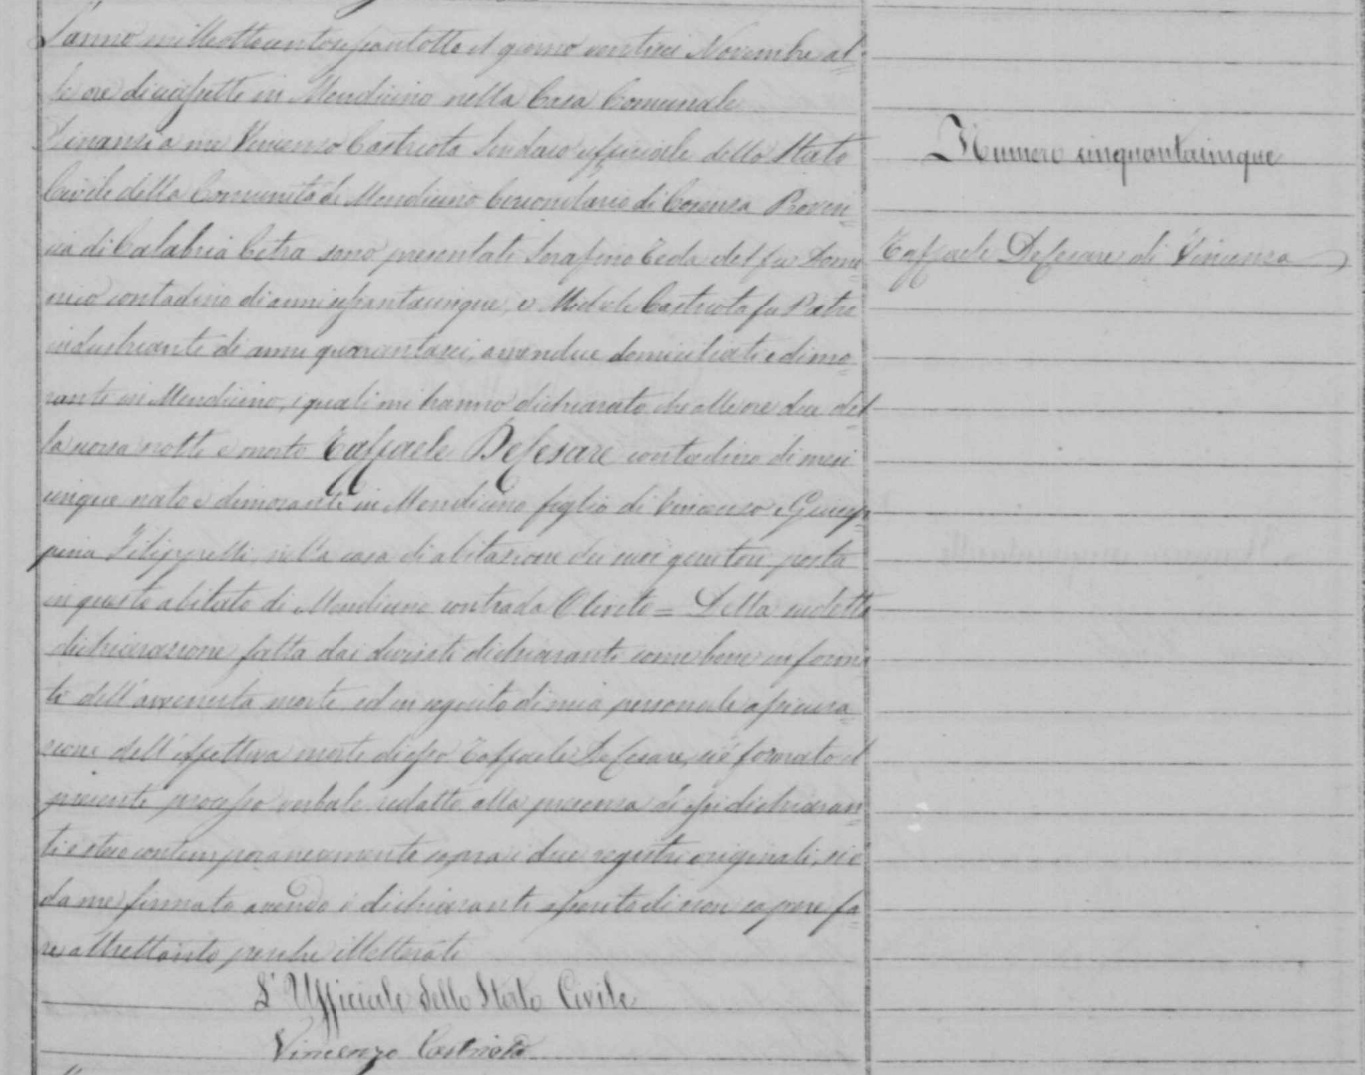 L'anno milleottocentosessantotto il giorno ventisei Novembre al-
le ore diecisette in Mendicino nella Casa Comunale
Dinanzi a me Vincenzo Castriota Sindaco ufficiale dello Stato
Civile della Comunità di Mendicino Circondario di Cosenza Provin-
cia di Calabria Citra sono presentati Serafino Ceda del fu Dome
nico contadino di anni sessantacinque, e Michele Castriota fu Pietro
industriante di anni quarantasei, amendue domiciliati e dimo-
ranti in Mendicino, i quali mi hanno dichiarato che alle ore due del
la scorsa notte è morto Raffaele DeCesare contadino di mesi
cinque nato e dimorante in Mendicino figlio di Vincenzo e Giusep
pina Filippelli, nella casa di abitazione dei suoi genitori posta
in questo abitato di Mendicino contrada Oliveto = Della sudetta
dichiarazione fatta dai divisati dichiaranti come bene informa
ti dell'avvenuta morte ed in seguito di mia personale assicura-
zione dell'effettiva morte di esso Raffaele DeCesare, si è formato il
presente processo verbale redatto alla presenza di essi dichiaran-
ti e steso contemporaneamente sopra i due registri originali, si è
da me firmato avendo i dichiaranti asserito di non sapere fa-
re altrettanto perché illetterati
L'Ufficiale dello Stato Civile
Vincenzo Castriota
Numero cinquantacinque
Raffaele DeCesare di Vincenzo